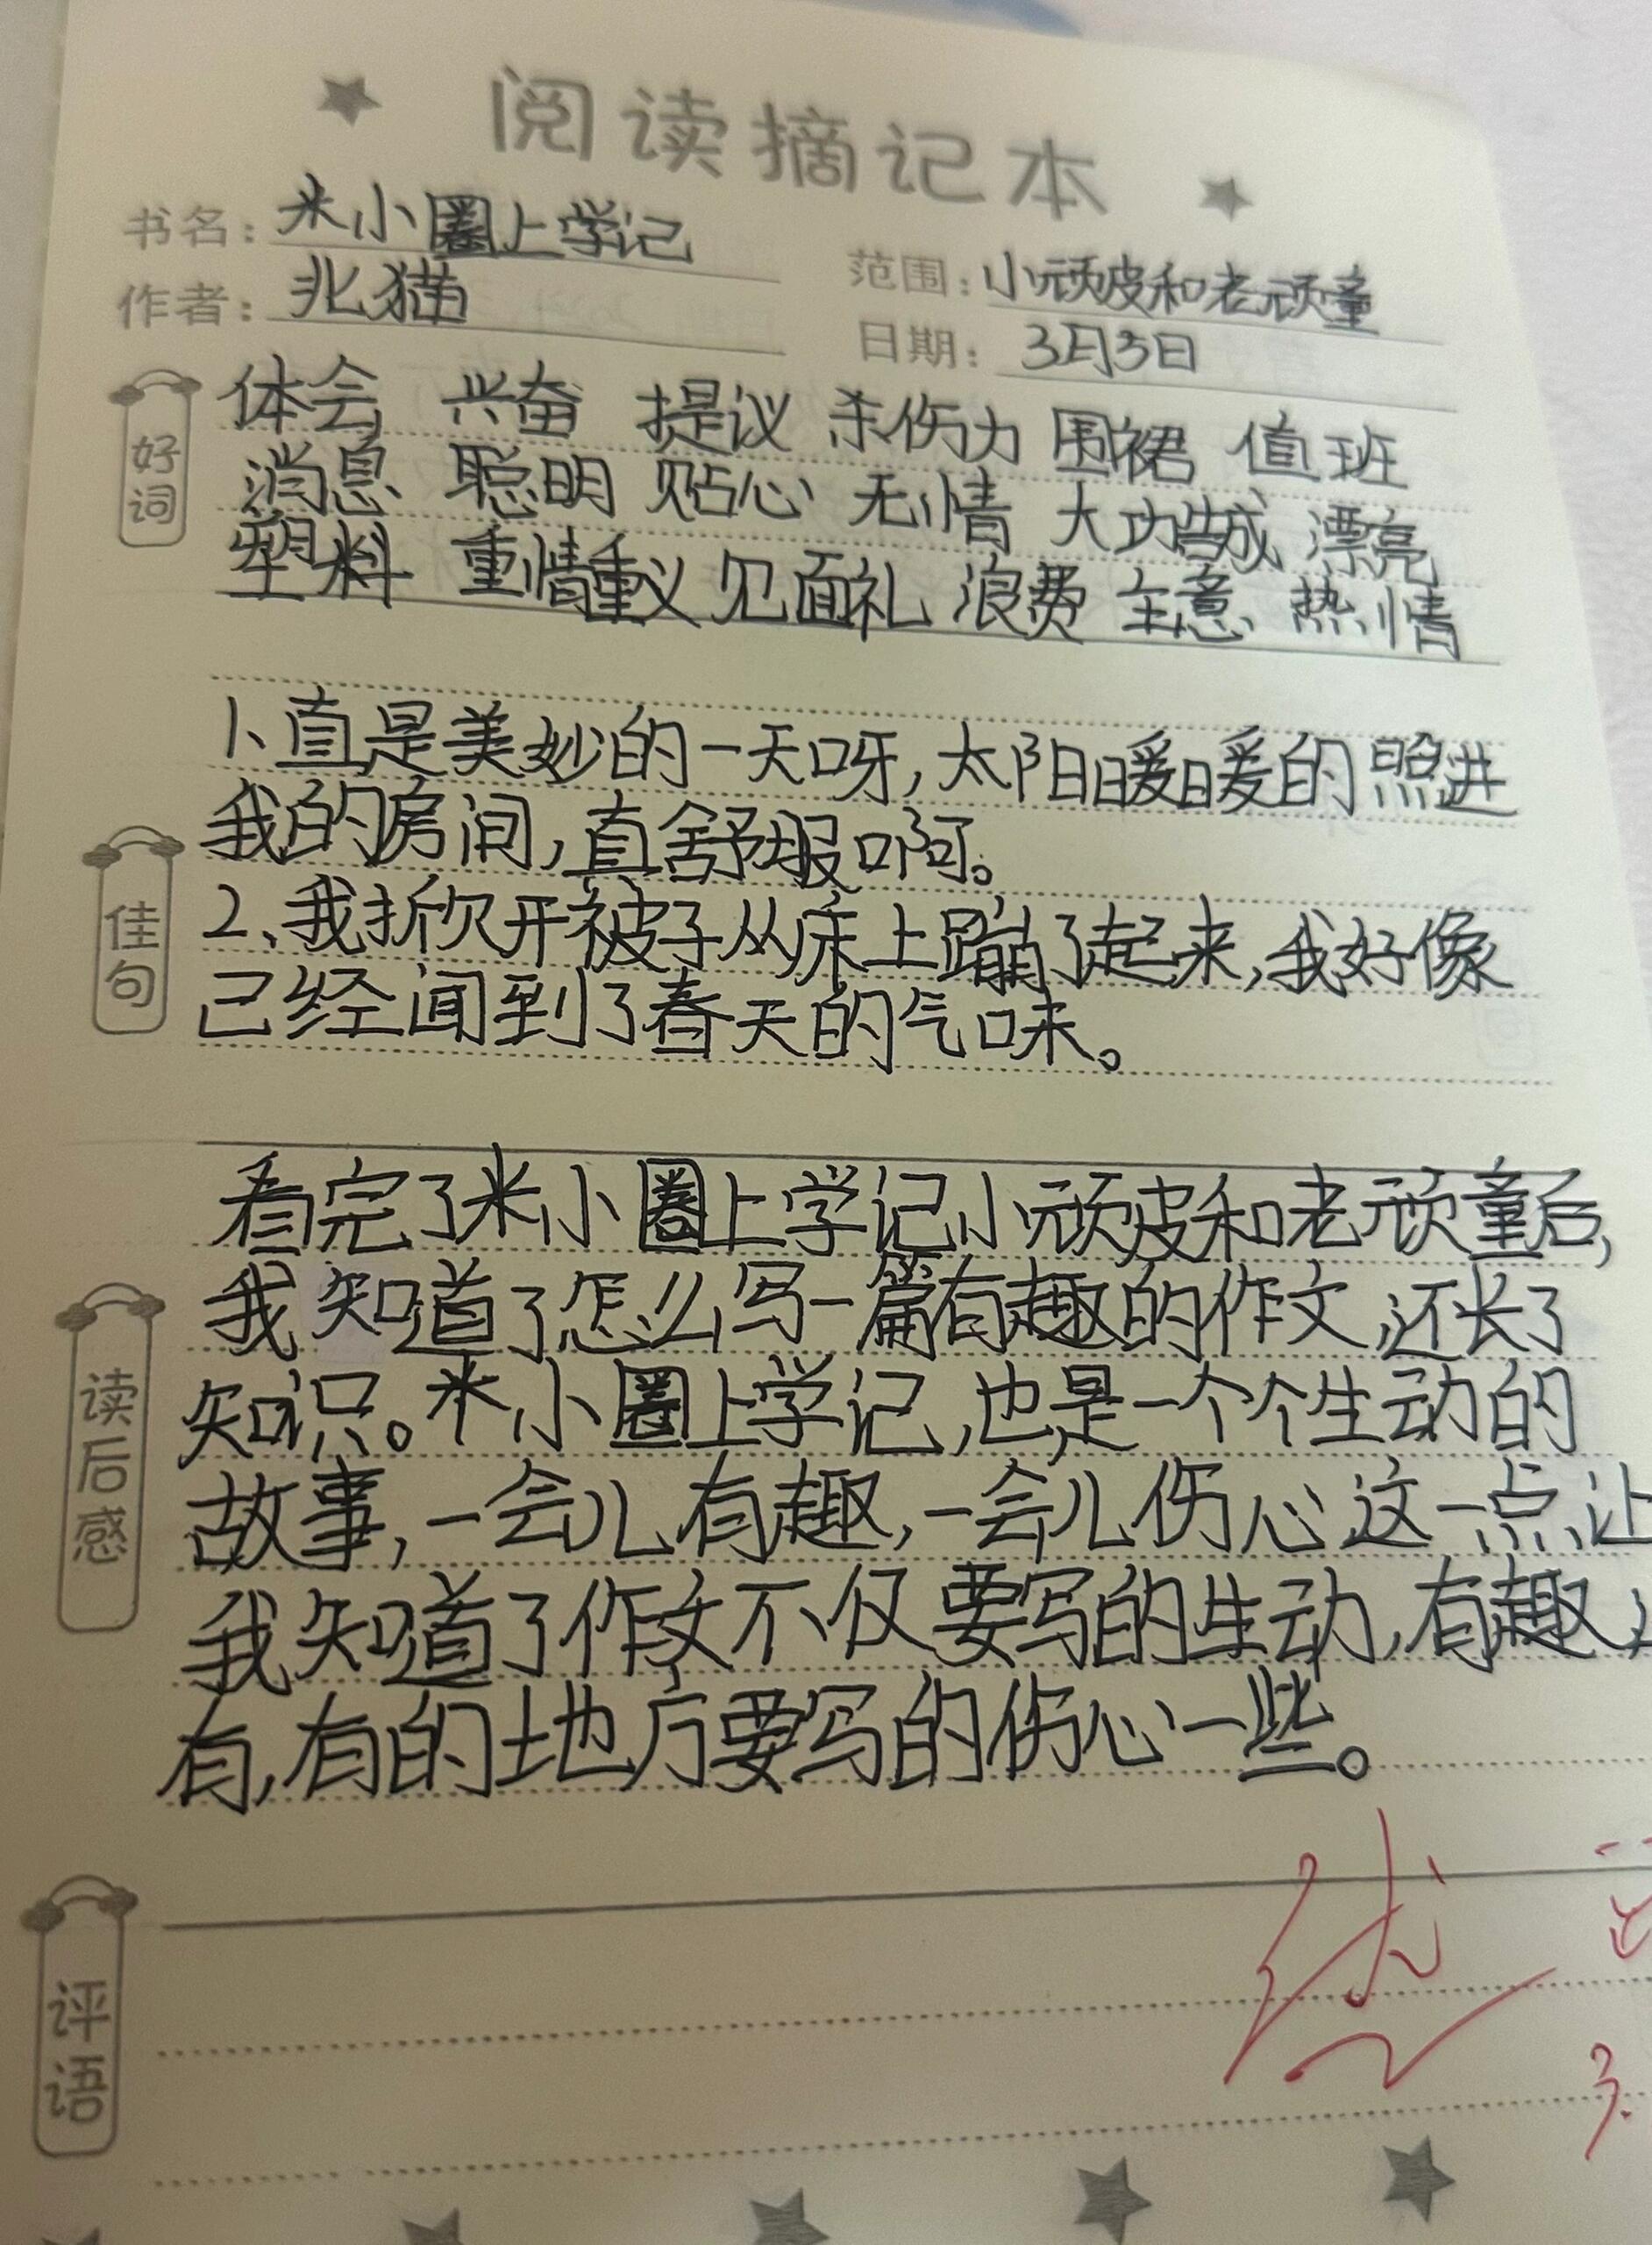 阅读摘记本
书名：米小圈上学记
范围：小顽皮和老顽童
作者：北猫
日期：3月3日
好词
体会 兴奋 提议 杀伤力 围裙 值班
消息 聪明 贴心 无情 大功告成 漂亮
塑料 重情重义 见面礼 浪费 主意 热情
佳句
1、直是美妙的一天呀，太阳暖暖的照进
我的房间，直舒服啊。
2、我掀开被子从床上蹦了起来，我好像
已经闻到了春天的气味。
读后感
看完了米小圈上学记小顽皮和老顽童后，
我知道了怎么写一篇有趣的作文，还长了
知识。米小圈上学记，也是一个个生动的
故事，一会儿有趣，一会儿伤心这一点让
我知道了作文不仅要写的生动，有趣，
有，有的地方要写的伤心一些。
评语
优
3.